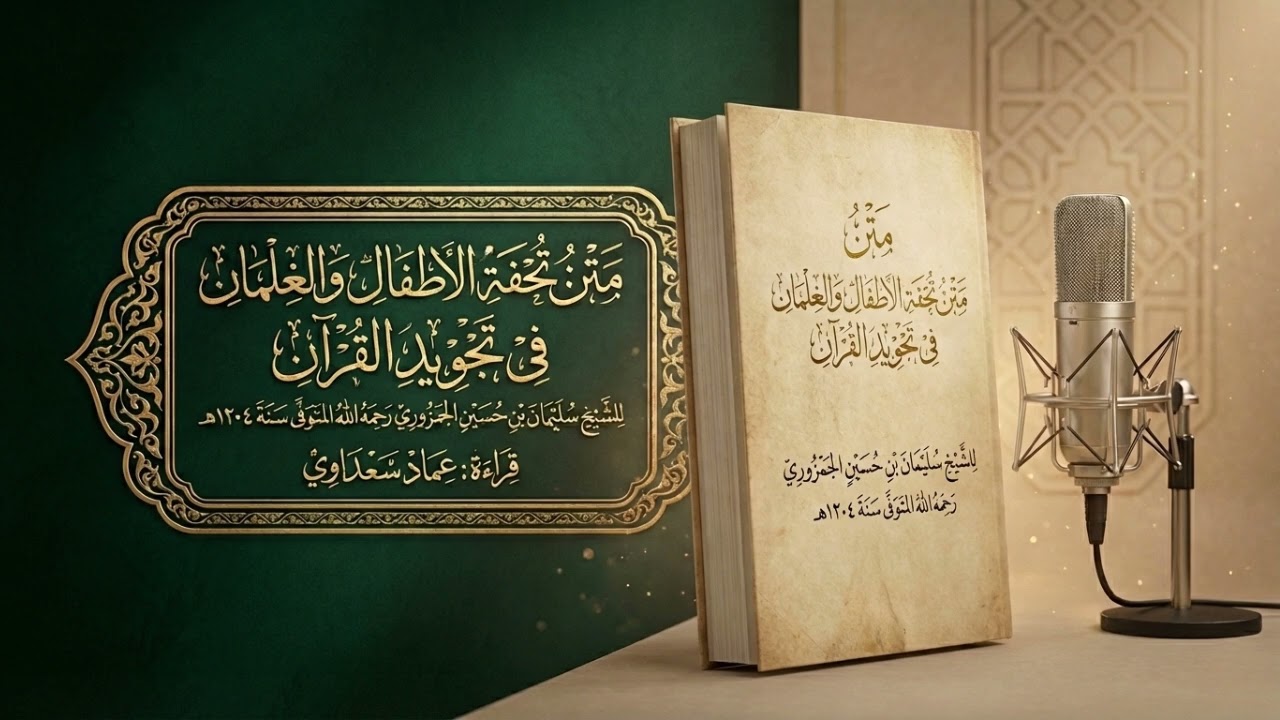 مَتْنُ تُحْفَةِ الأَطْفَالِ وَالغِلْمَانِ
فِي تَجْوِيدِ القُرْآنِ
لِلشَّيْخِ سُلَيْمَانَ بْنِ حُسَيْنٍ الجَمْزُورِيِّ رَحِمَهُ اللهُ المُتَوَفَّى سَنَةَ ١٢٠٤هـ
قِرَاءَة: عِمَادْ سَعْدَاوِيْ
مَتْنُ
مَتْنُ تُحْفَةِ الأَطْفَالِ وَالغِلْمَانِ
فِي تَجْوِيدِ القُرْآنِ
لِلشَّيْخِ سُلَيْمَانَ بْنِ حُسَيْنٍ الجَمْزُورِيِّ
رَحِمَهُ اللهُ المُتَوَفَّى سَنَةَ ١٢٠٤هـ